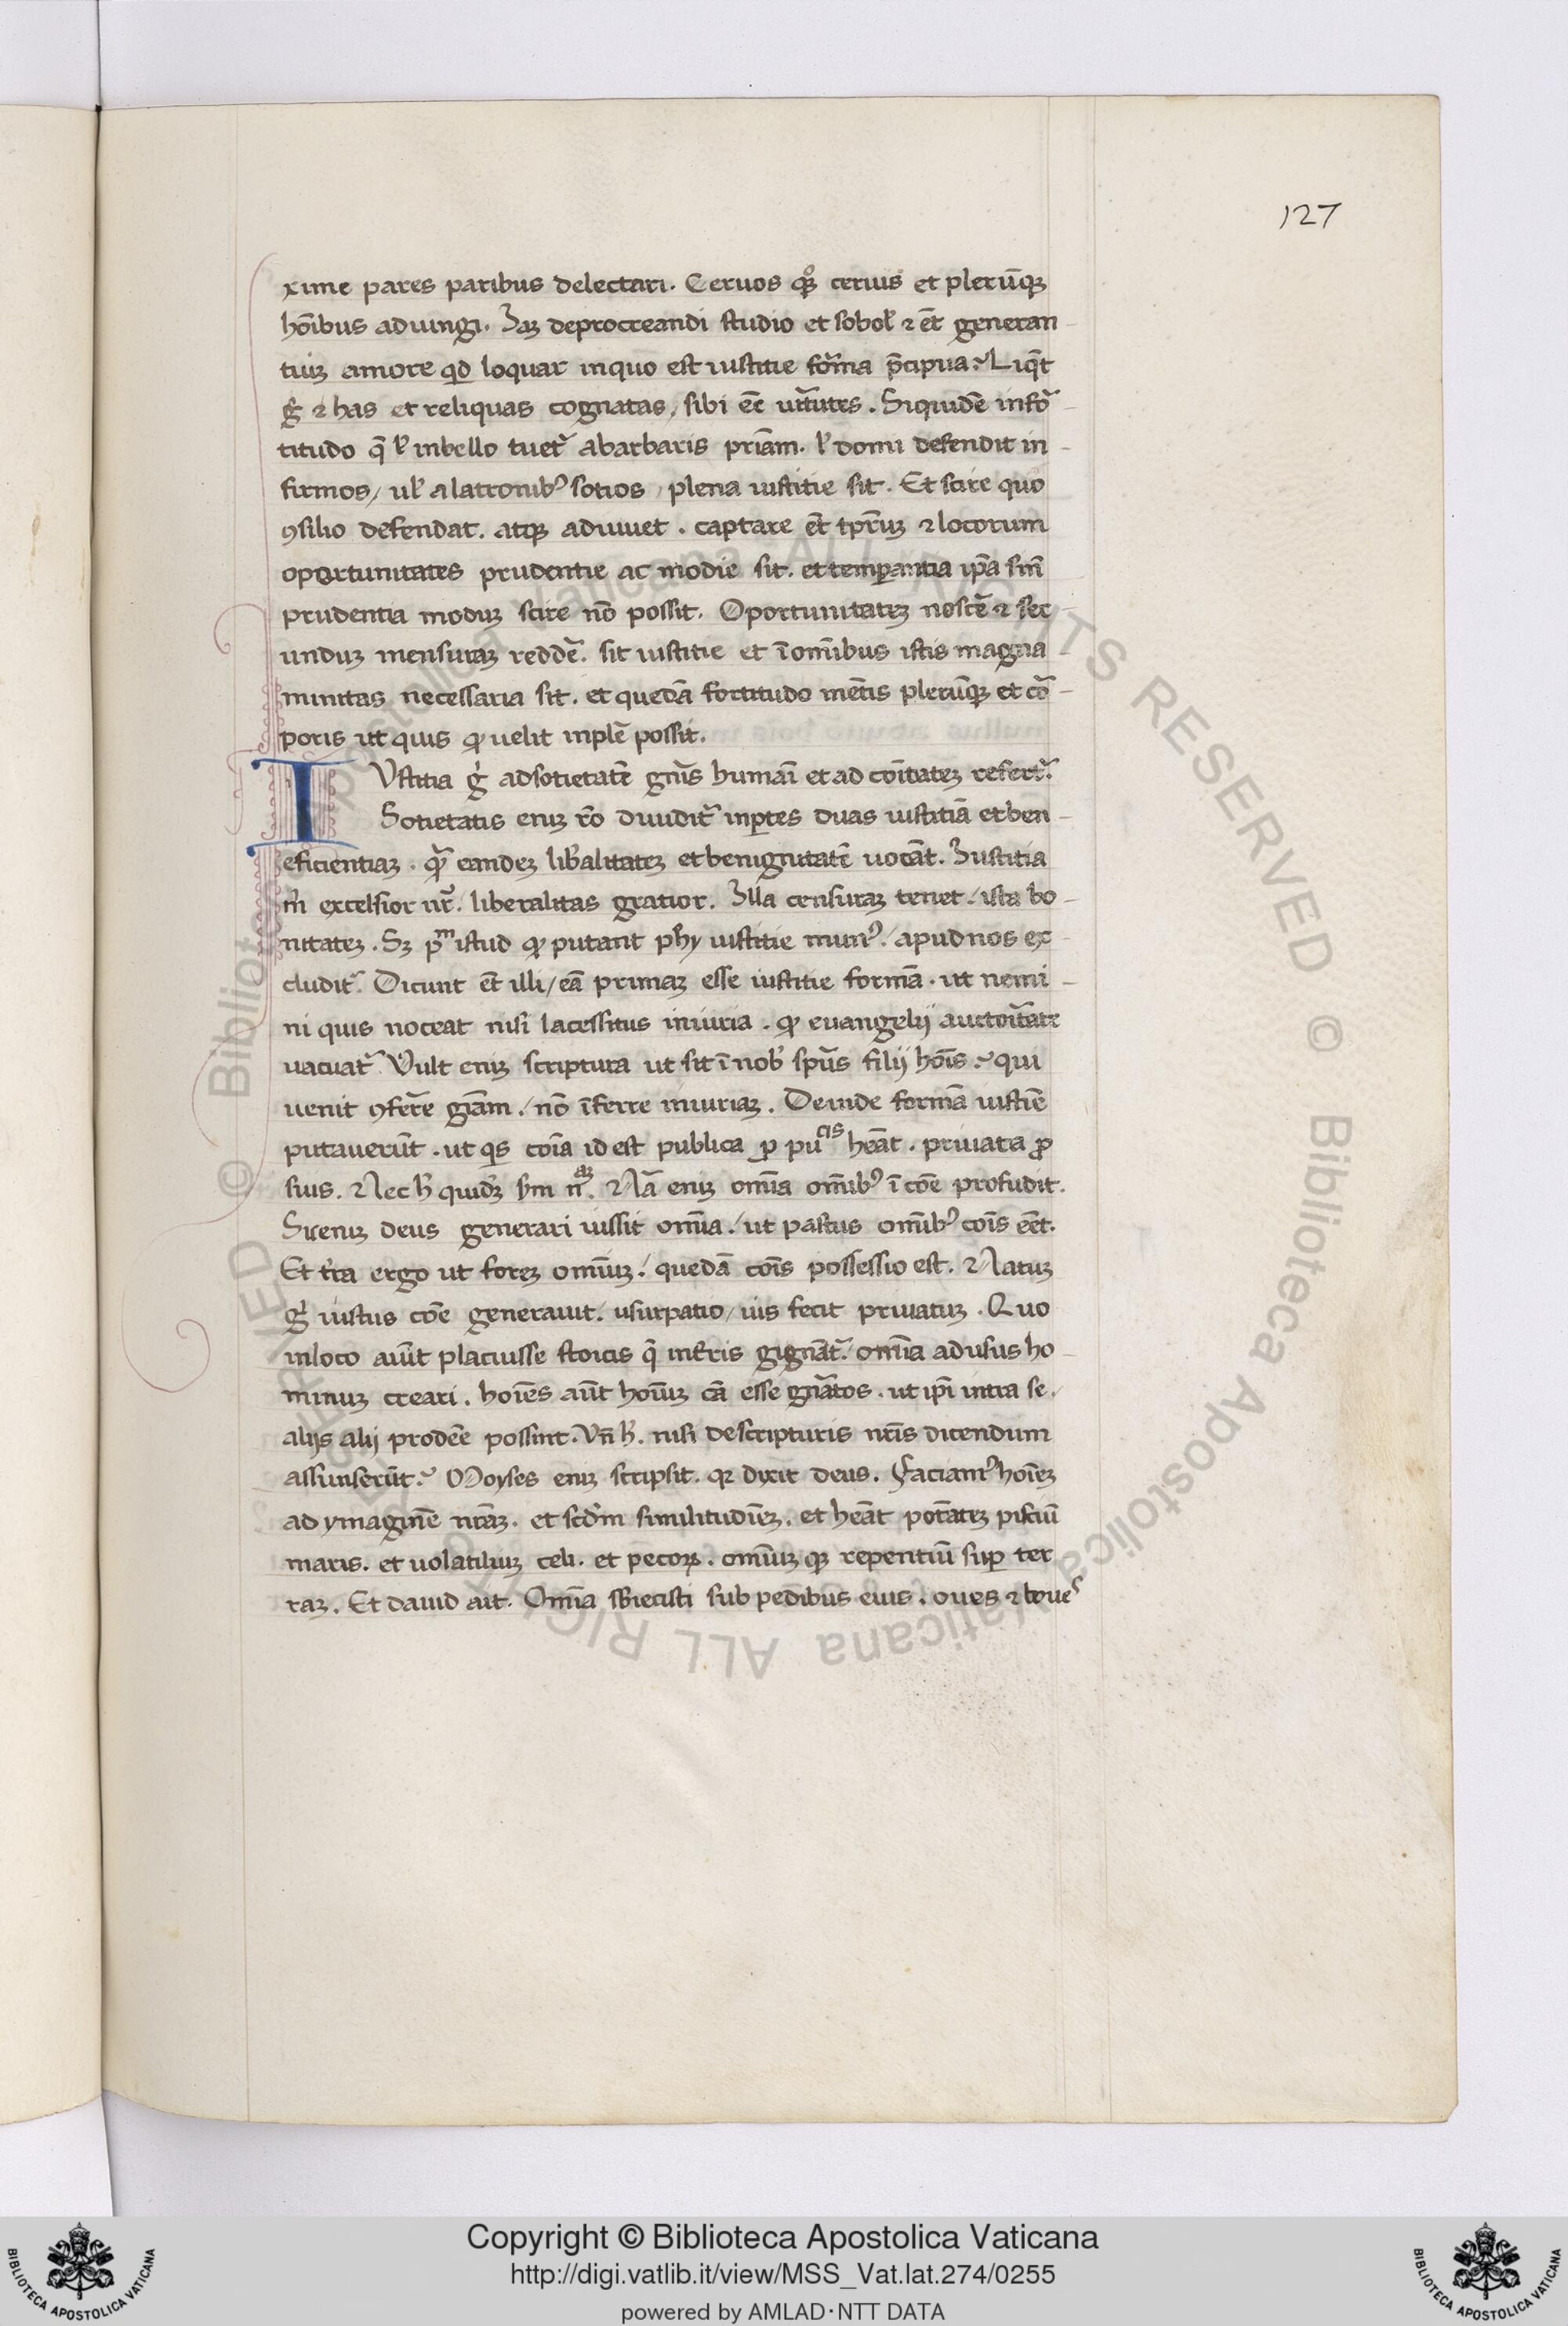 127
xime pares paribus delectari. Ceruos qꝫ ceruis et plerūqꝫ
hoībus adiungi. Iaꝫ deprocreandi studio et sobol̕ ⁊ et̄ generan
tiuꝫ amore qd loquar inquo est iustitie foꝛma p̄cipua? Liq̄t
g̊ ⁊ has et reliquas cognatas, sibi ee̅ uirtutes. Siquidē infoꝛ̄
titudo q̄ ł inbello tuet᷑ abarbaris pr̄iam. ł domi defendit in
firmos, ul̕ alatronibꝰ sotios, plena iustitie sit. Et scire quo
ꝯsilio defendat. atqꝫ adiuuet. captare et̄ tp̄ꝝ ⁊ locorum
oportunitates prudentie ac modie sit. et temꝑantia ip̄a sin̄
prudentia moduꝫ scire nō possit. Oportunitateꝫ noscē̕ ⁊ sec
unduꝫ mensuraꝫ reddē̕. sit iustitie et ī om̄ibus istis magna
nimitas necessaria sit. et quedā fortitudo mētis plerūqꝫ et coꝛ̄
poris ut quis qđ uelit inplē̕ possit.
IVstitia g̊ adsotietatē gn̄is humāi et ad coītateꝫ refert᷑.
Sotietatis eniꝫ rō diuidit᷑ inꝑtes duas iustitiā et ben
eficientiaꝫ. qđ eandeꝫ lib̕alitateꝫ et benignitatē uocāt. Iustitia
m̄ excelsior ur᷑. liberalitas gratior. Illa censuraꝫ tenet. ista bo
nitateꝫ. Sꝫ p̄ᵐ istud qđ putant phy iustitie munꝰ. apud nos ex
cludit᷑. Dicunt et̄ illi, eā primaꝫ esse iustitie formā. ut nemi
ni quis noceat nisi lacessitus iniuria. qđ euangelij auctoītate
uacuat᷑. Vult eniꝫ scriptura ut sit ī nob̕ sp̄us filij hoīs. qui
uenit ꝯferre gr̄am. nō īferre iniuriaꝫ. Deinde formā iustitiē
putauerūt. ut qis coīa id est publica ꝓ puᶜⁱˢ heāt. priuata ꝓ
suis. Nec h̕ quideꝫ sm n̄ᵃꝫ. Nā eniꝫ om̄ia om̄ibꝰ ī coē profudit.
Sic eniꝫ deus generari iussit om̄ia. ut pastus om̄ibꝰ coīs eēt.
Et tr̄a ergo ut foreꝫ om̄iuꝫ. quedā coīs possessio est. Natuꝫ
g̊ iustus coē generauit. usurpatio, ius fecit priuatuꝫ. Quo
inloco aiūt placuisse stoicis q̄ inter̄is gignāt᷑. om̄ia adusus ho
minuꝫ creari. hoīes aūt hoīuꝫ cā esse gn̄atos. ut ip̄i intra se.
alijs alij prodēe possint. Vn̄ h̕. nisi descripturis nr̄is dicendum
assunserūt? Moyses eniꝫ scripsit. qꝛ dixit deus. Faciamꝰ hoīeꝫ
ad ymaginē nr̄aꝫ. et scd̕m similitudīeꝫ. et heāt potātēꝫ pisciū
maris. et uolatiliuꝫ celi. et pecoꝝ. omīuꝫ qꝫ repentiū suꝑ ter
raꝫ. Et dauid ait. Om̄ia sb̕iecisti sub pedibus eius. oues ⁊ boues
Copyright © Biblioteca Apostolica Vaticana
http://digi.vatlib.it/view/MSS_Vat.lat.274/0255
powered by AMLAD·NTT DATA